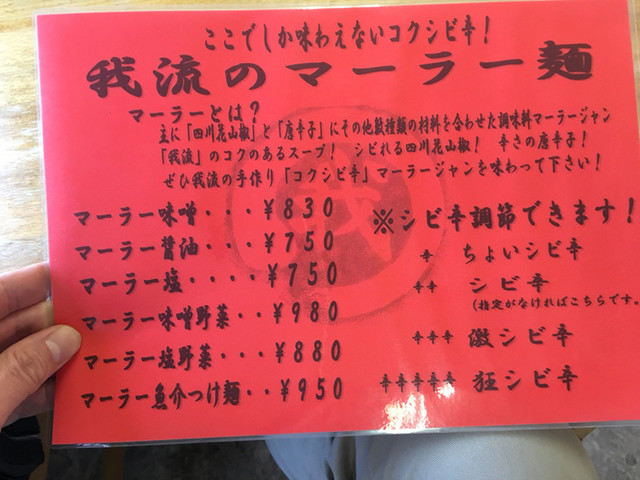 ここでしか味わえないコクシビ辛!
我流のマーラー麺
マーラーとは?
主に「四川花山椒」と「唐辛子」にその他数種類の材料を合わせた調味料マーラージャン
「我流」のコクのあるスープ! シビれる四川花山椒! 辛さの唐辛子!
ぜひ我流の手作り「コクシビ辛」マーラージャンを味わって下さい!
マーラー味噌・・・¥830
マーラー醤油・・・¥750
マーラー塩・・・・¥750
マーラー味噌野菜・・¥980
マーラー塩野菜・・・¥880
マーラー魚介つけ麺・・¥950
※シビ辛調節できます!
辛 ちょいシビ辛
辛辛 シビ辛
(指定がなければこちらです。)
辛辛辛 激シビ辛
辛辛辛辛辛 狂シビ辛
我